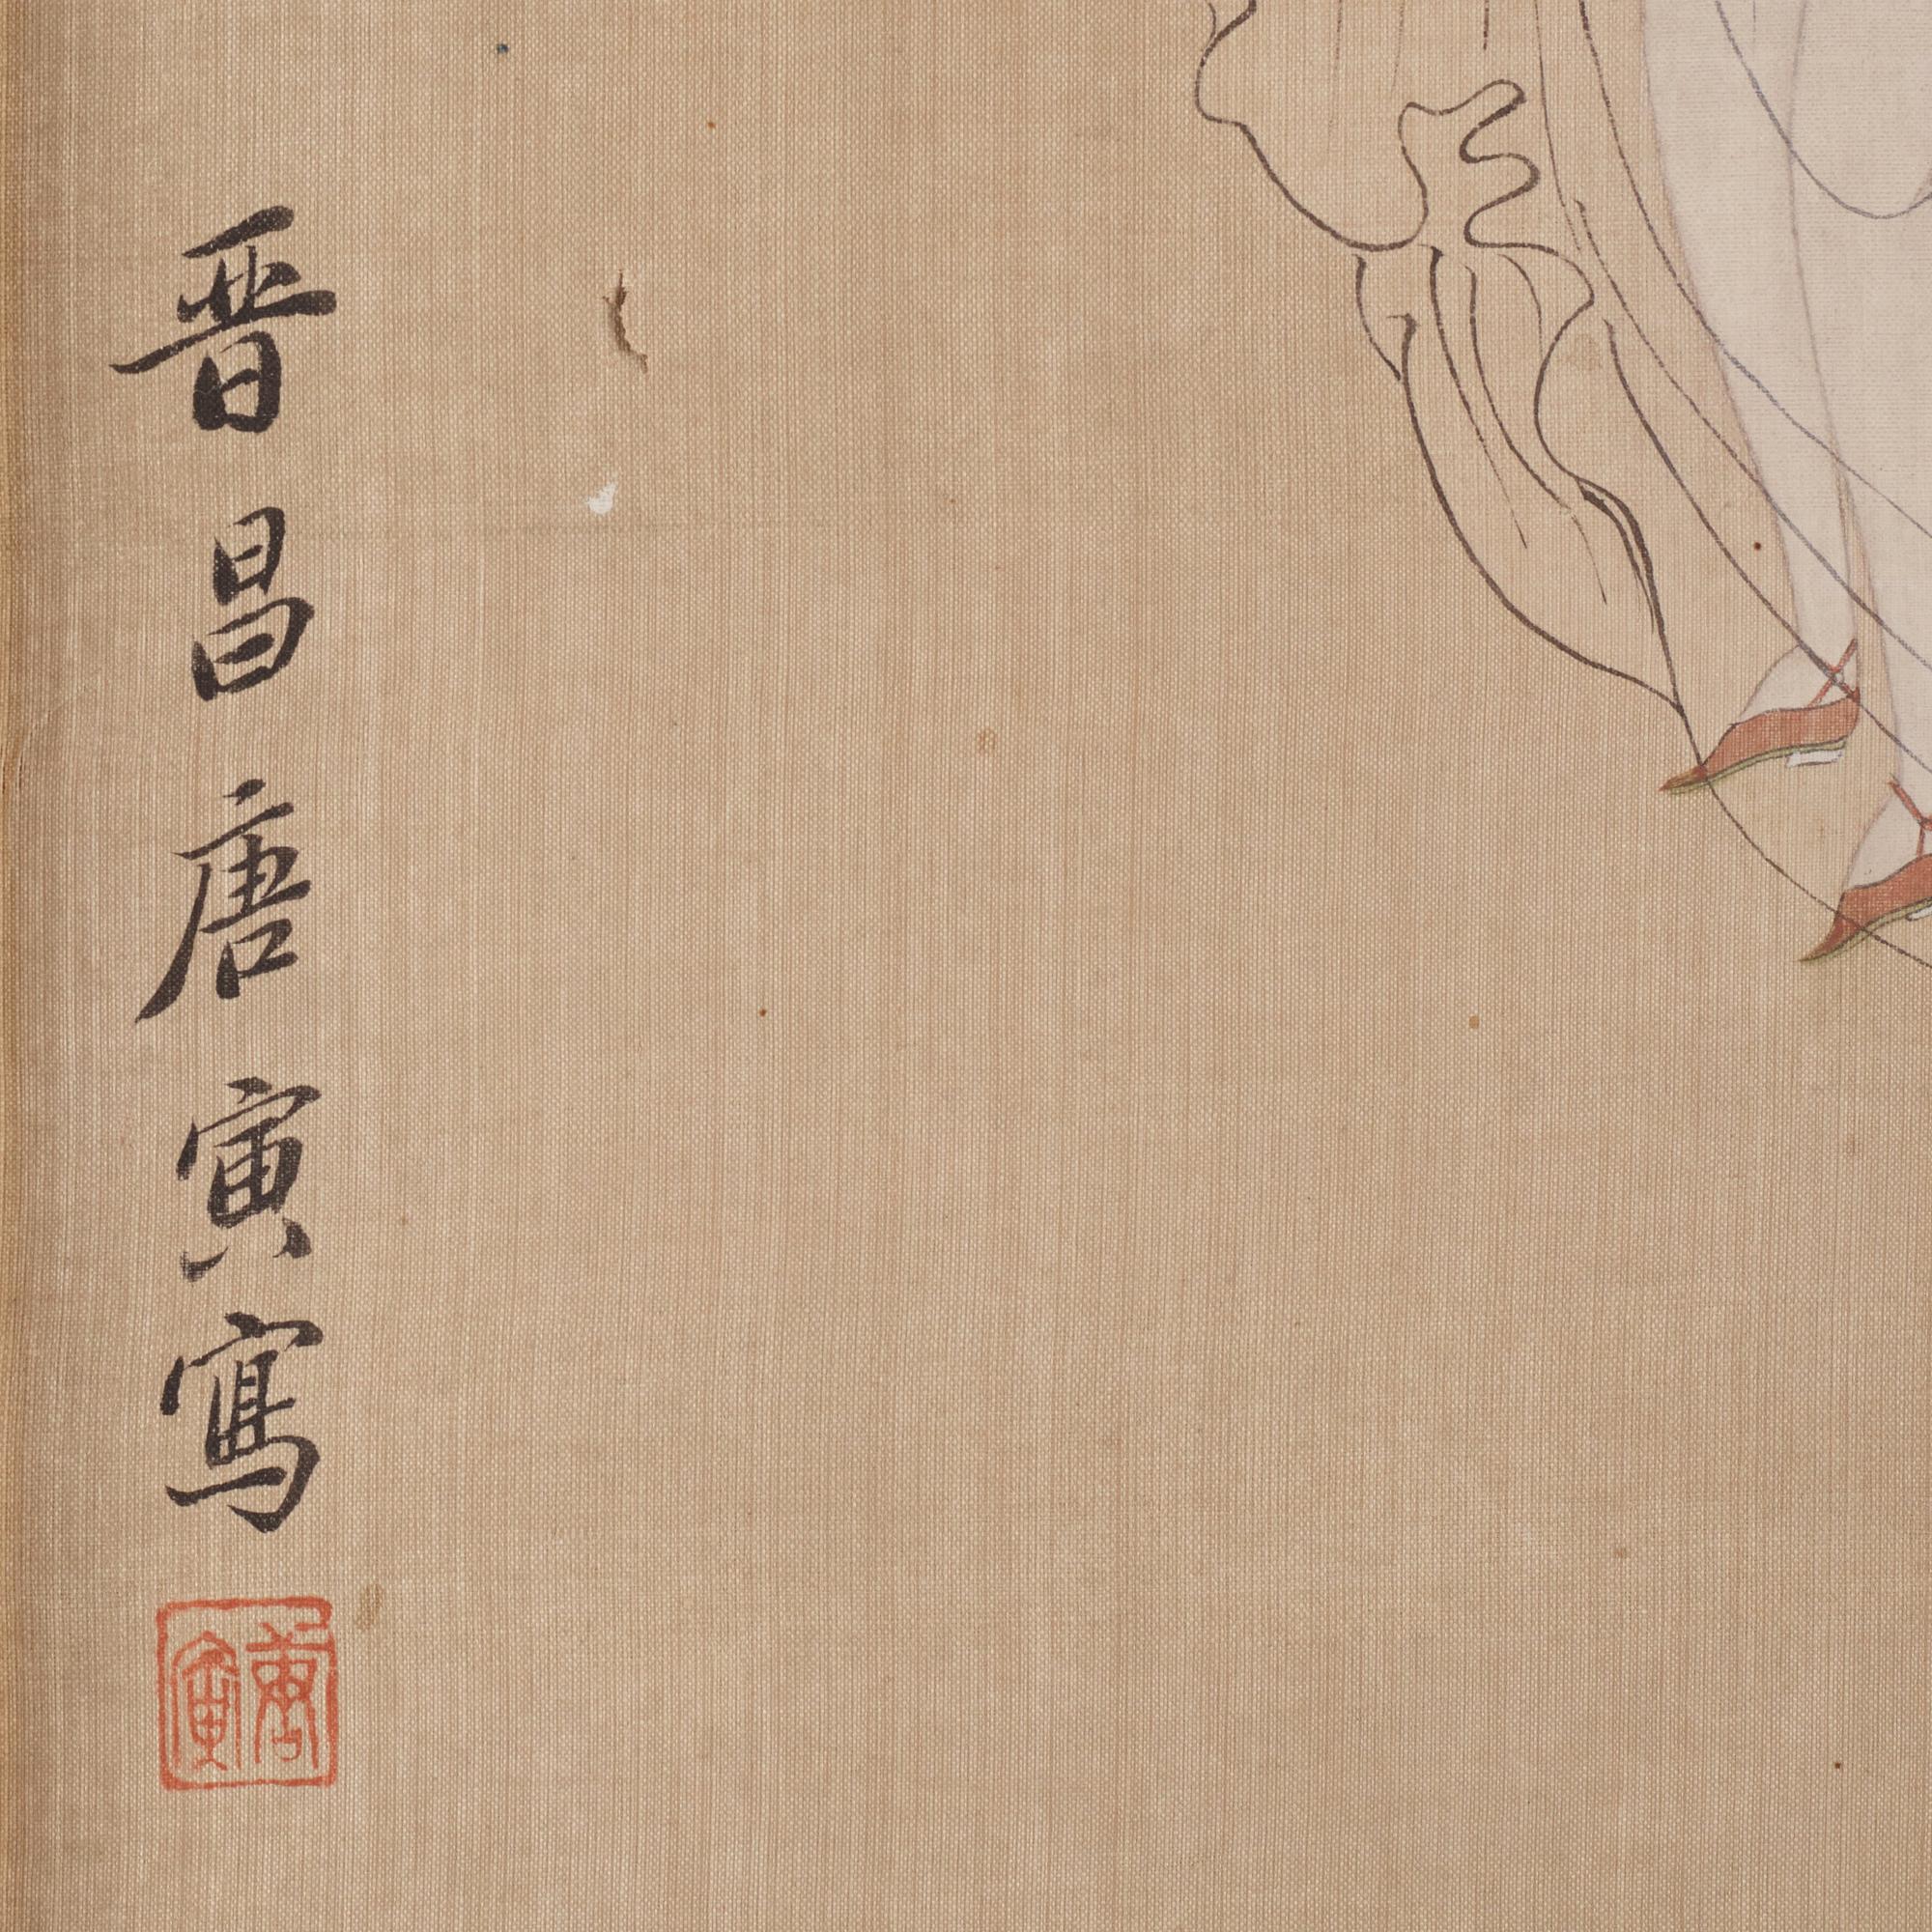 晋昌唐寅寫
唐寅